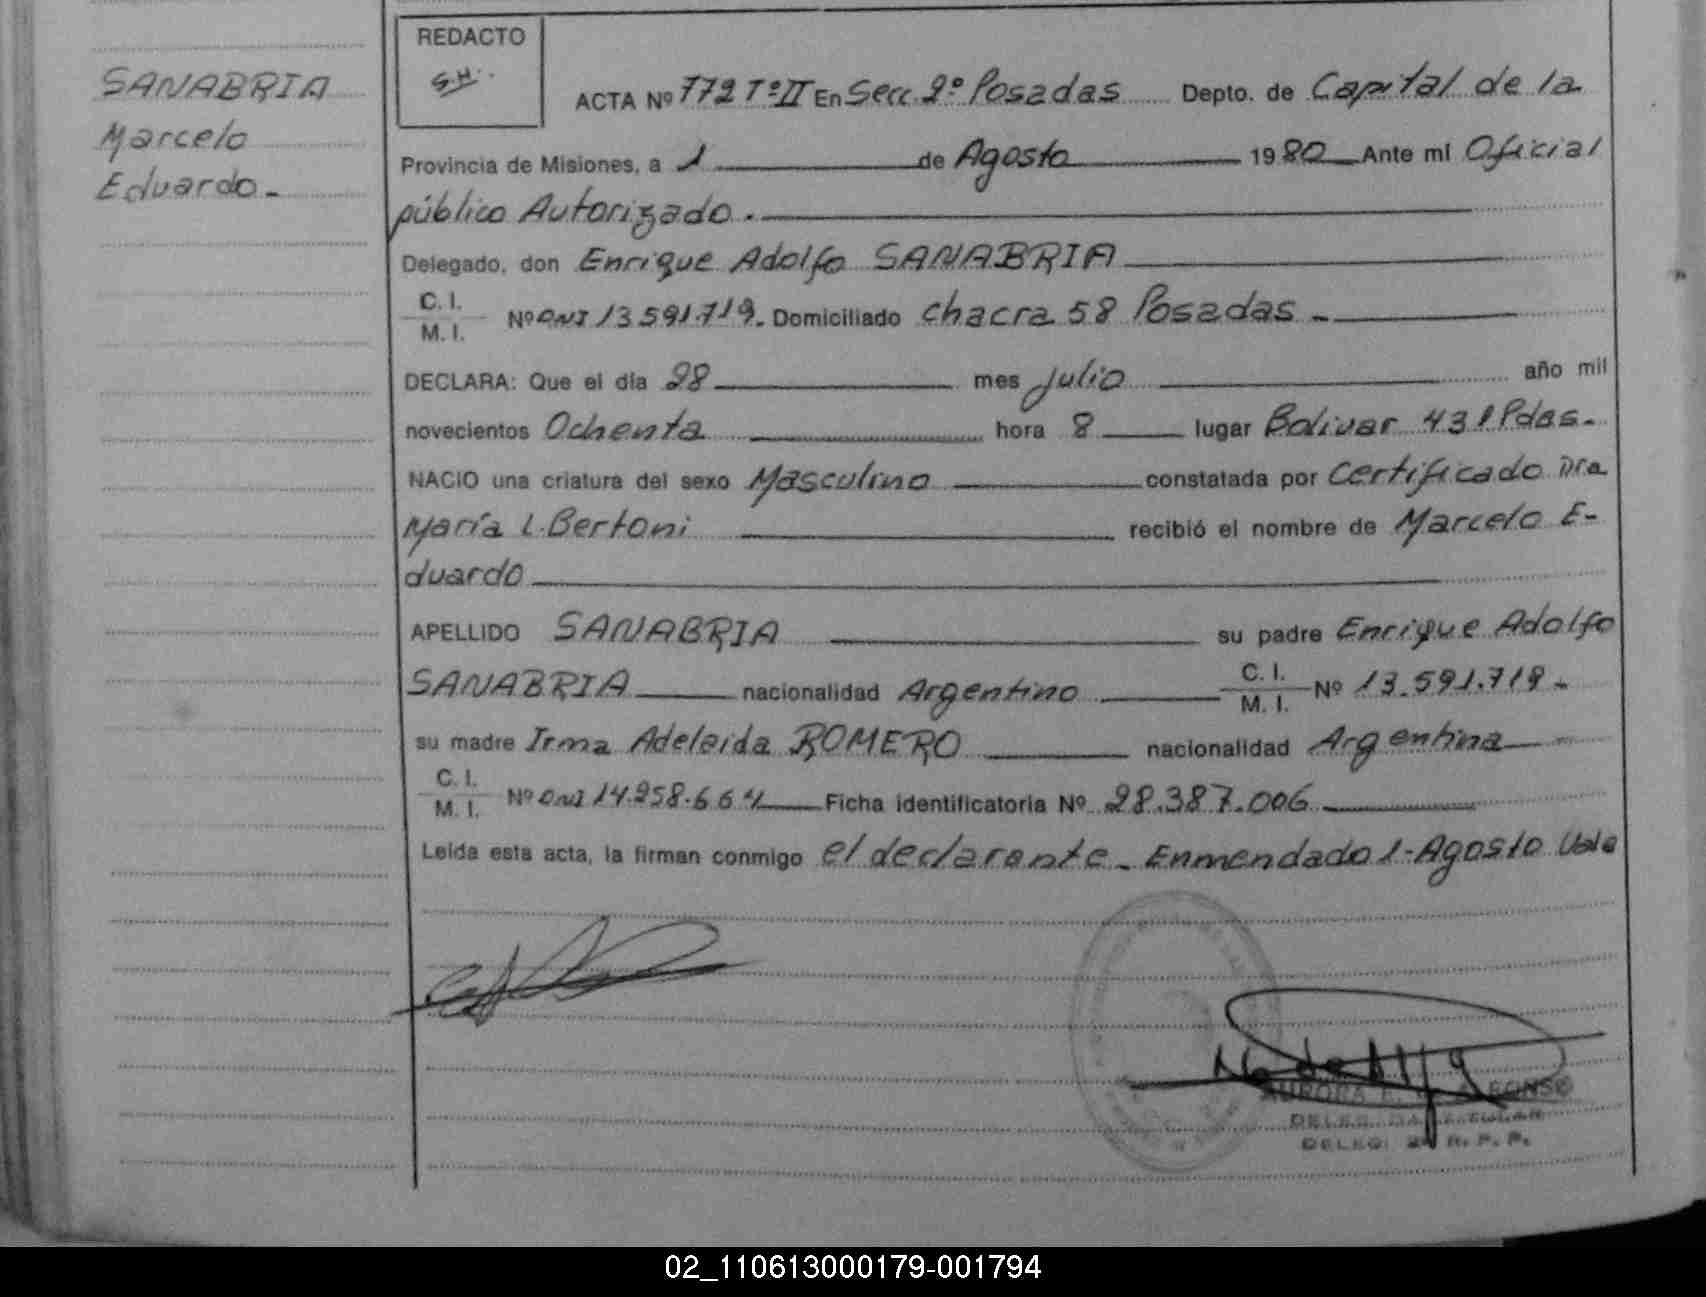 SANABRIA
Marcelo
Eduardo.-
REDACTO
ACTA Nº 772 Tº II En Secc 2º Posadas Depto. de Capital de la
Provincia de Misiones, a 1 de Agosto 1980 Ante mi Oficial
público Autorizado.
Delegado, don Enrique Adolfo SANABRIA
C. I.
M. I. Nº DNI 13.591.719. Domiciliado chacra 58 Posadas.-
DECLARA: Que el día 28 mes julio año mil
novecientos Ochenta hora 8 lugar Bolivar 431 Pdas.-
NACIO una criatura del sexo Masculino constatada por Certificado Dra
María L. Bertoni recibió el nombre de Marcelo E-
duardo
APELLIDO SANABRIA su padre Enrique Adolfo
SANABRIA nacionalidad Argentino C. I.
M. I. Nº 13.591.719.-
su madre Irma Adelaida ROMERO nacionalidad Argentina
C. I.
M. I. Nº DNI 14.258.664 Ficha identificatoria Nº 28.387.006
Leída esta acta, la firman conmigo el declarante.- Enmendado 1-Agosto Vale
AURORA E.
DELEG. R. P. P.
02_110613000179-001794